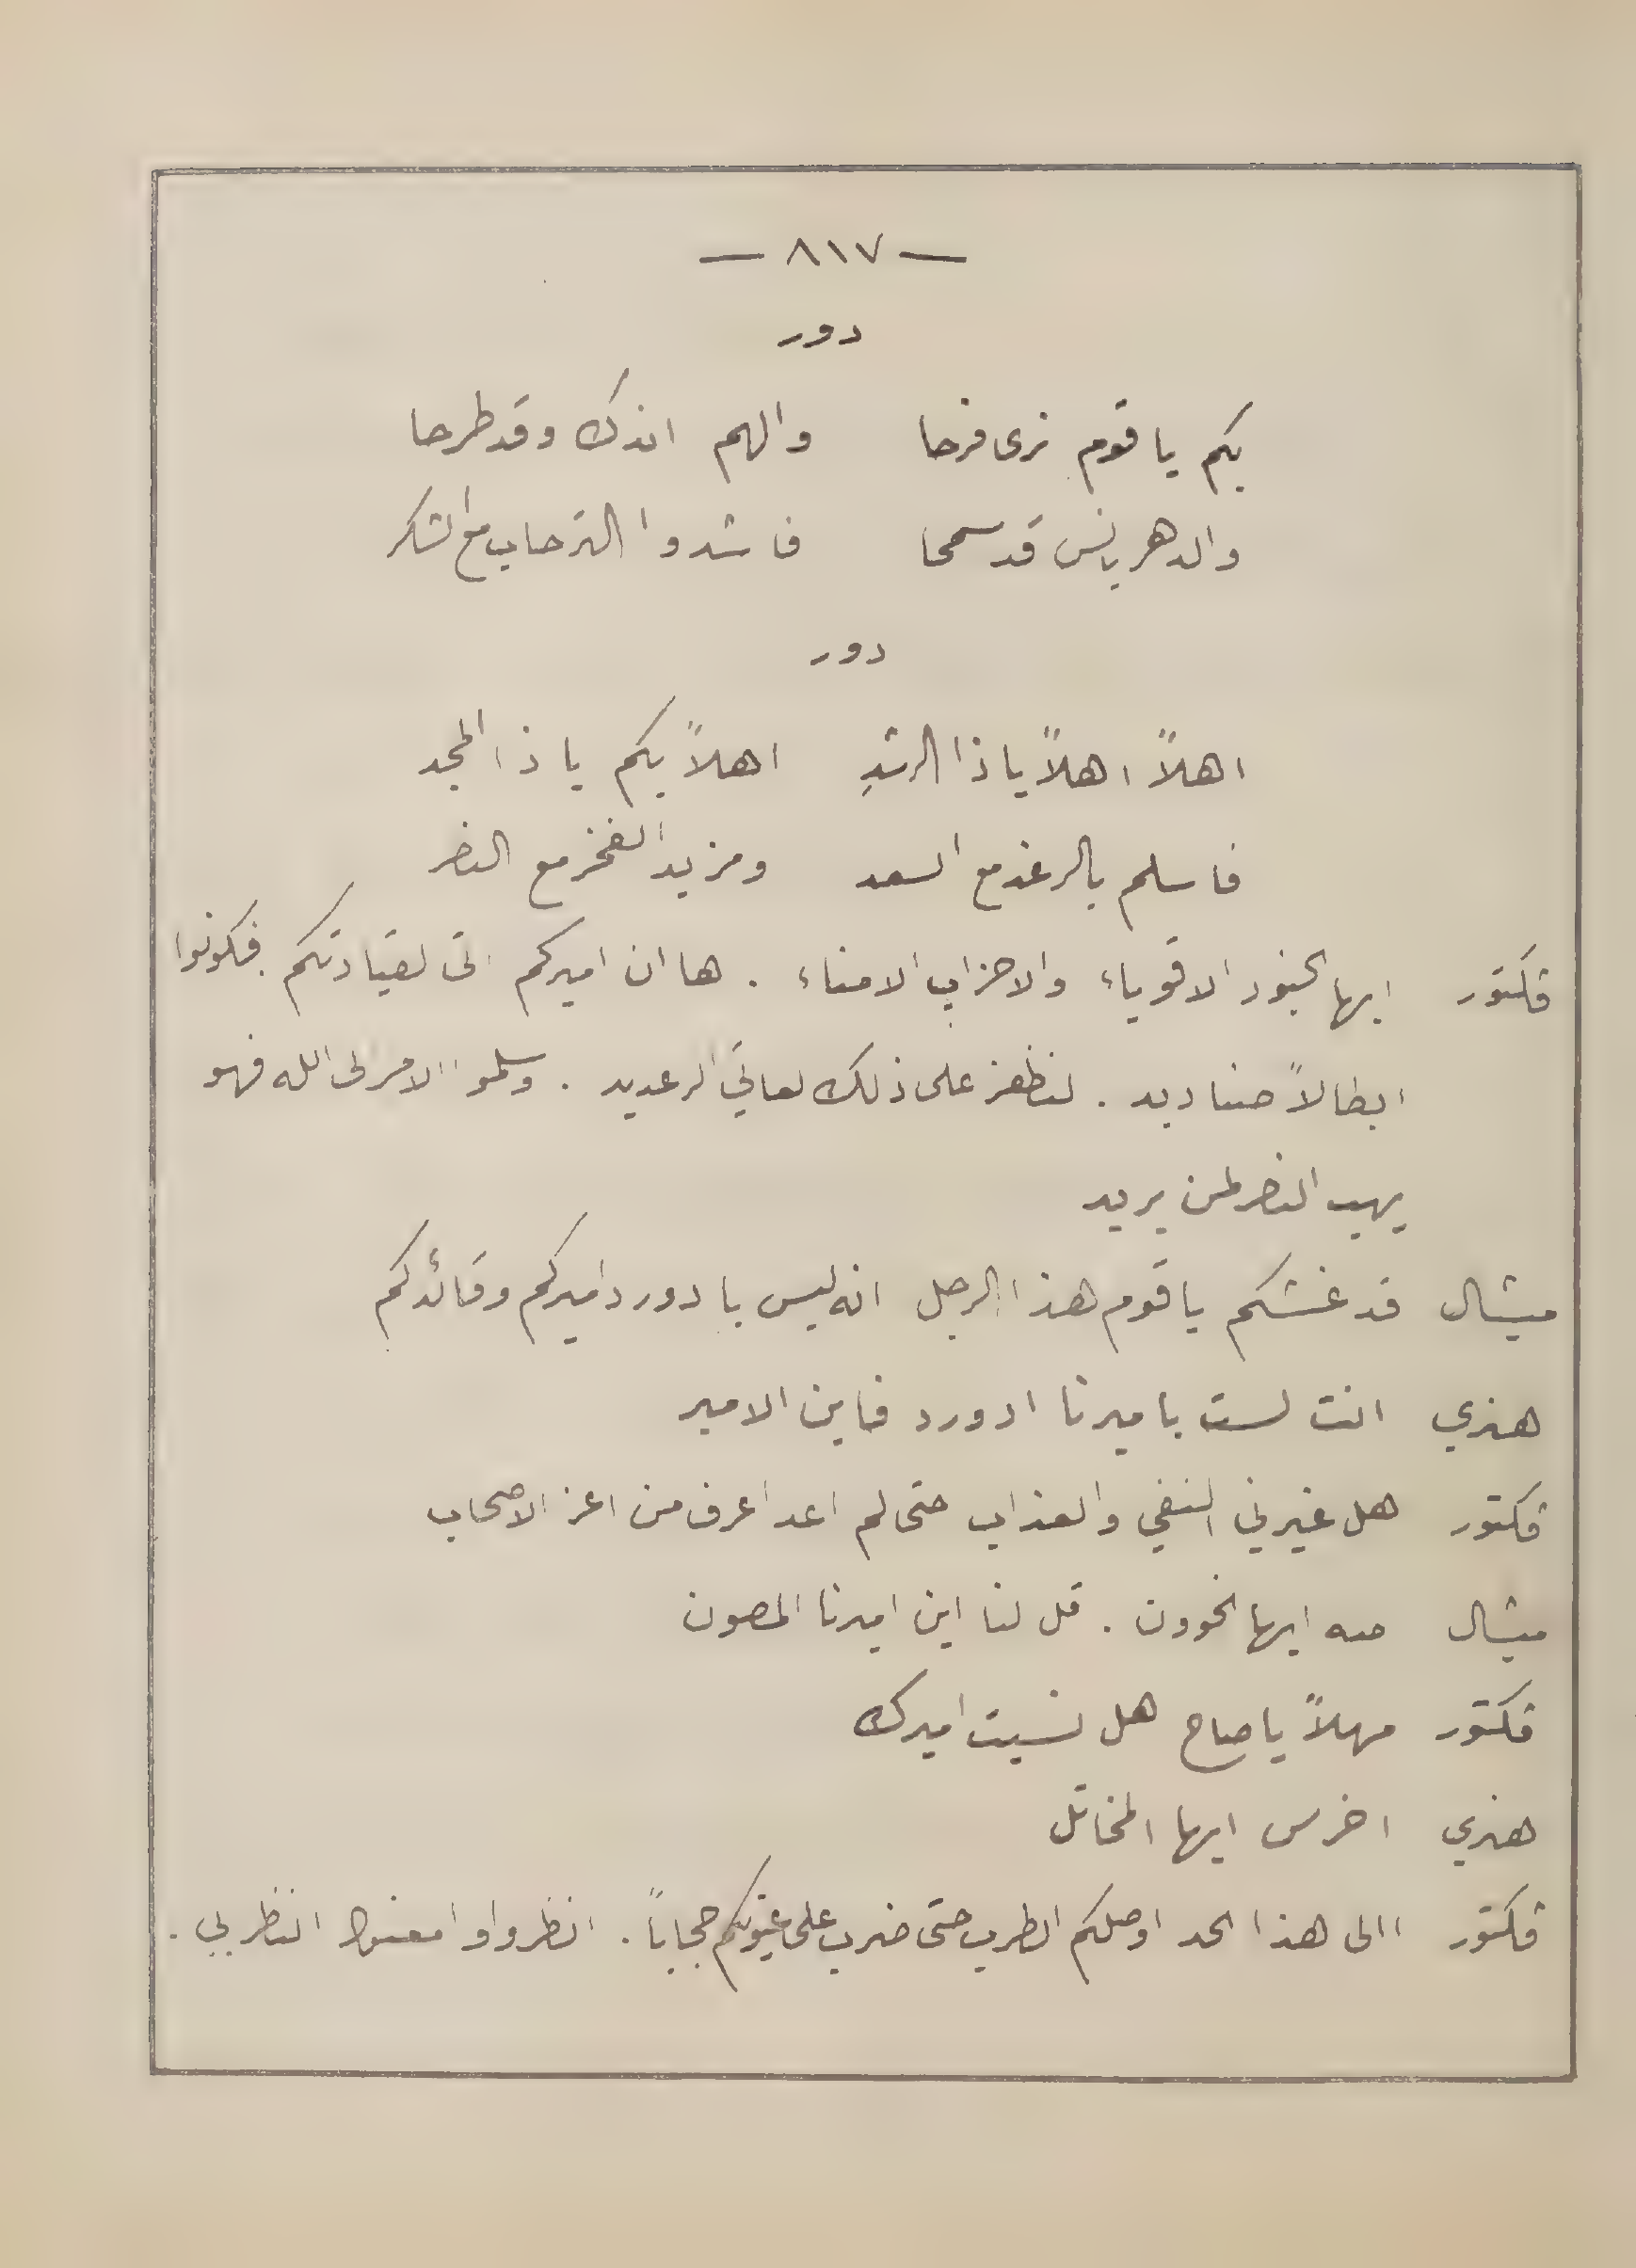 — ٨١٧ —
دور
بكم يا قوم نرى فرحا والهم اندك وقد طرحا
والدهر بانس قد سمحا فاشدوا الترحاب مع الشكر
دور
اهلاً اهلاً يا ذا الرشدِ اهلاً بكم يا ذا المجد
فاسلم بالرغد مع السعد ومزيد الفخر مع النصر
فكتور ايها الجنود الاقوياء والاحزاب الامناء . ها ان اميركم اتى لقيادتكم . فكونوا
ابطالاً صناديد . لنظفر على ذلك العاتي الرعديد . وسلموا الامر الى الله فهو
يهب النصر لمن يريد
ميشال قد غشكم يا قوم هذا الرجل انه ليس بادورد اميركم وقائدكم
هنري انت لست باميرنا ادورد فاين الامير
فكتور هل غيرني النفي والعذاب حتى لم اعد اعرف من اعز الاصحاب
ميشال صه ايها الخوون . قل لنا اين اميرنا المصون
فكتور مهلاً يا صاح هل نسيت اميرك
هنري اخرس ايها المخاتل
فكتور االى هذا الحد اوصلكم الطرب حتى ضرب على عيونكم حجاباً . انظروا وامعنوا النظر بي .